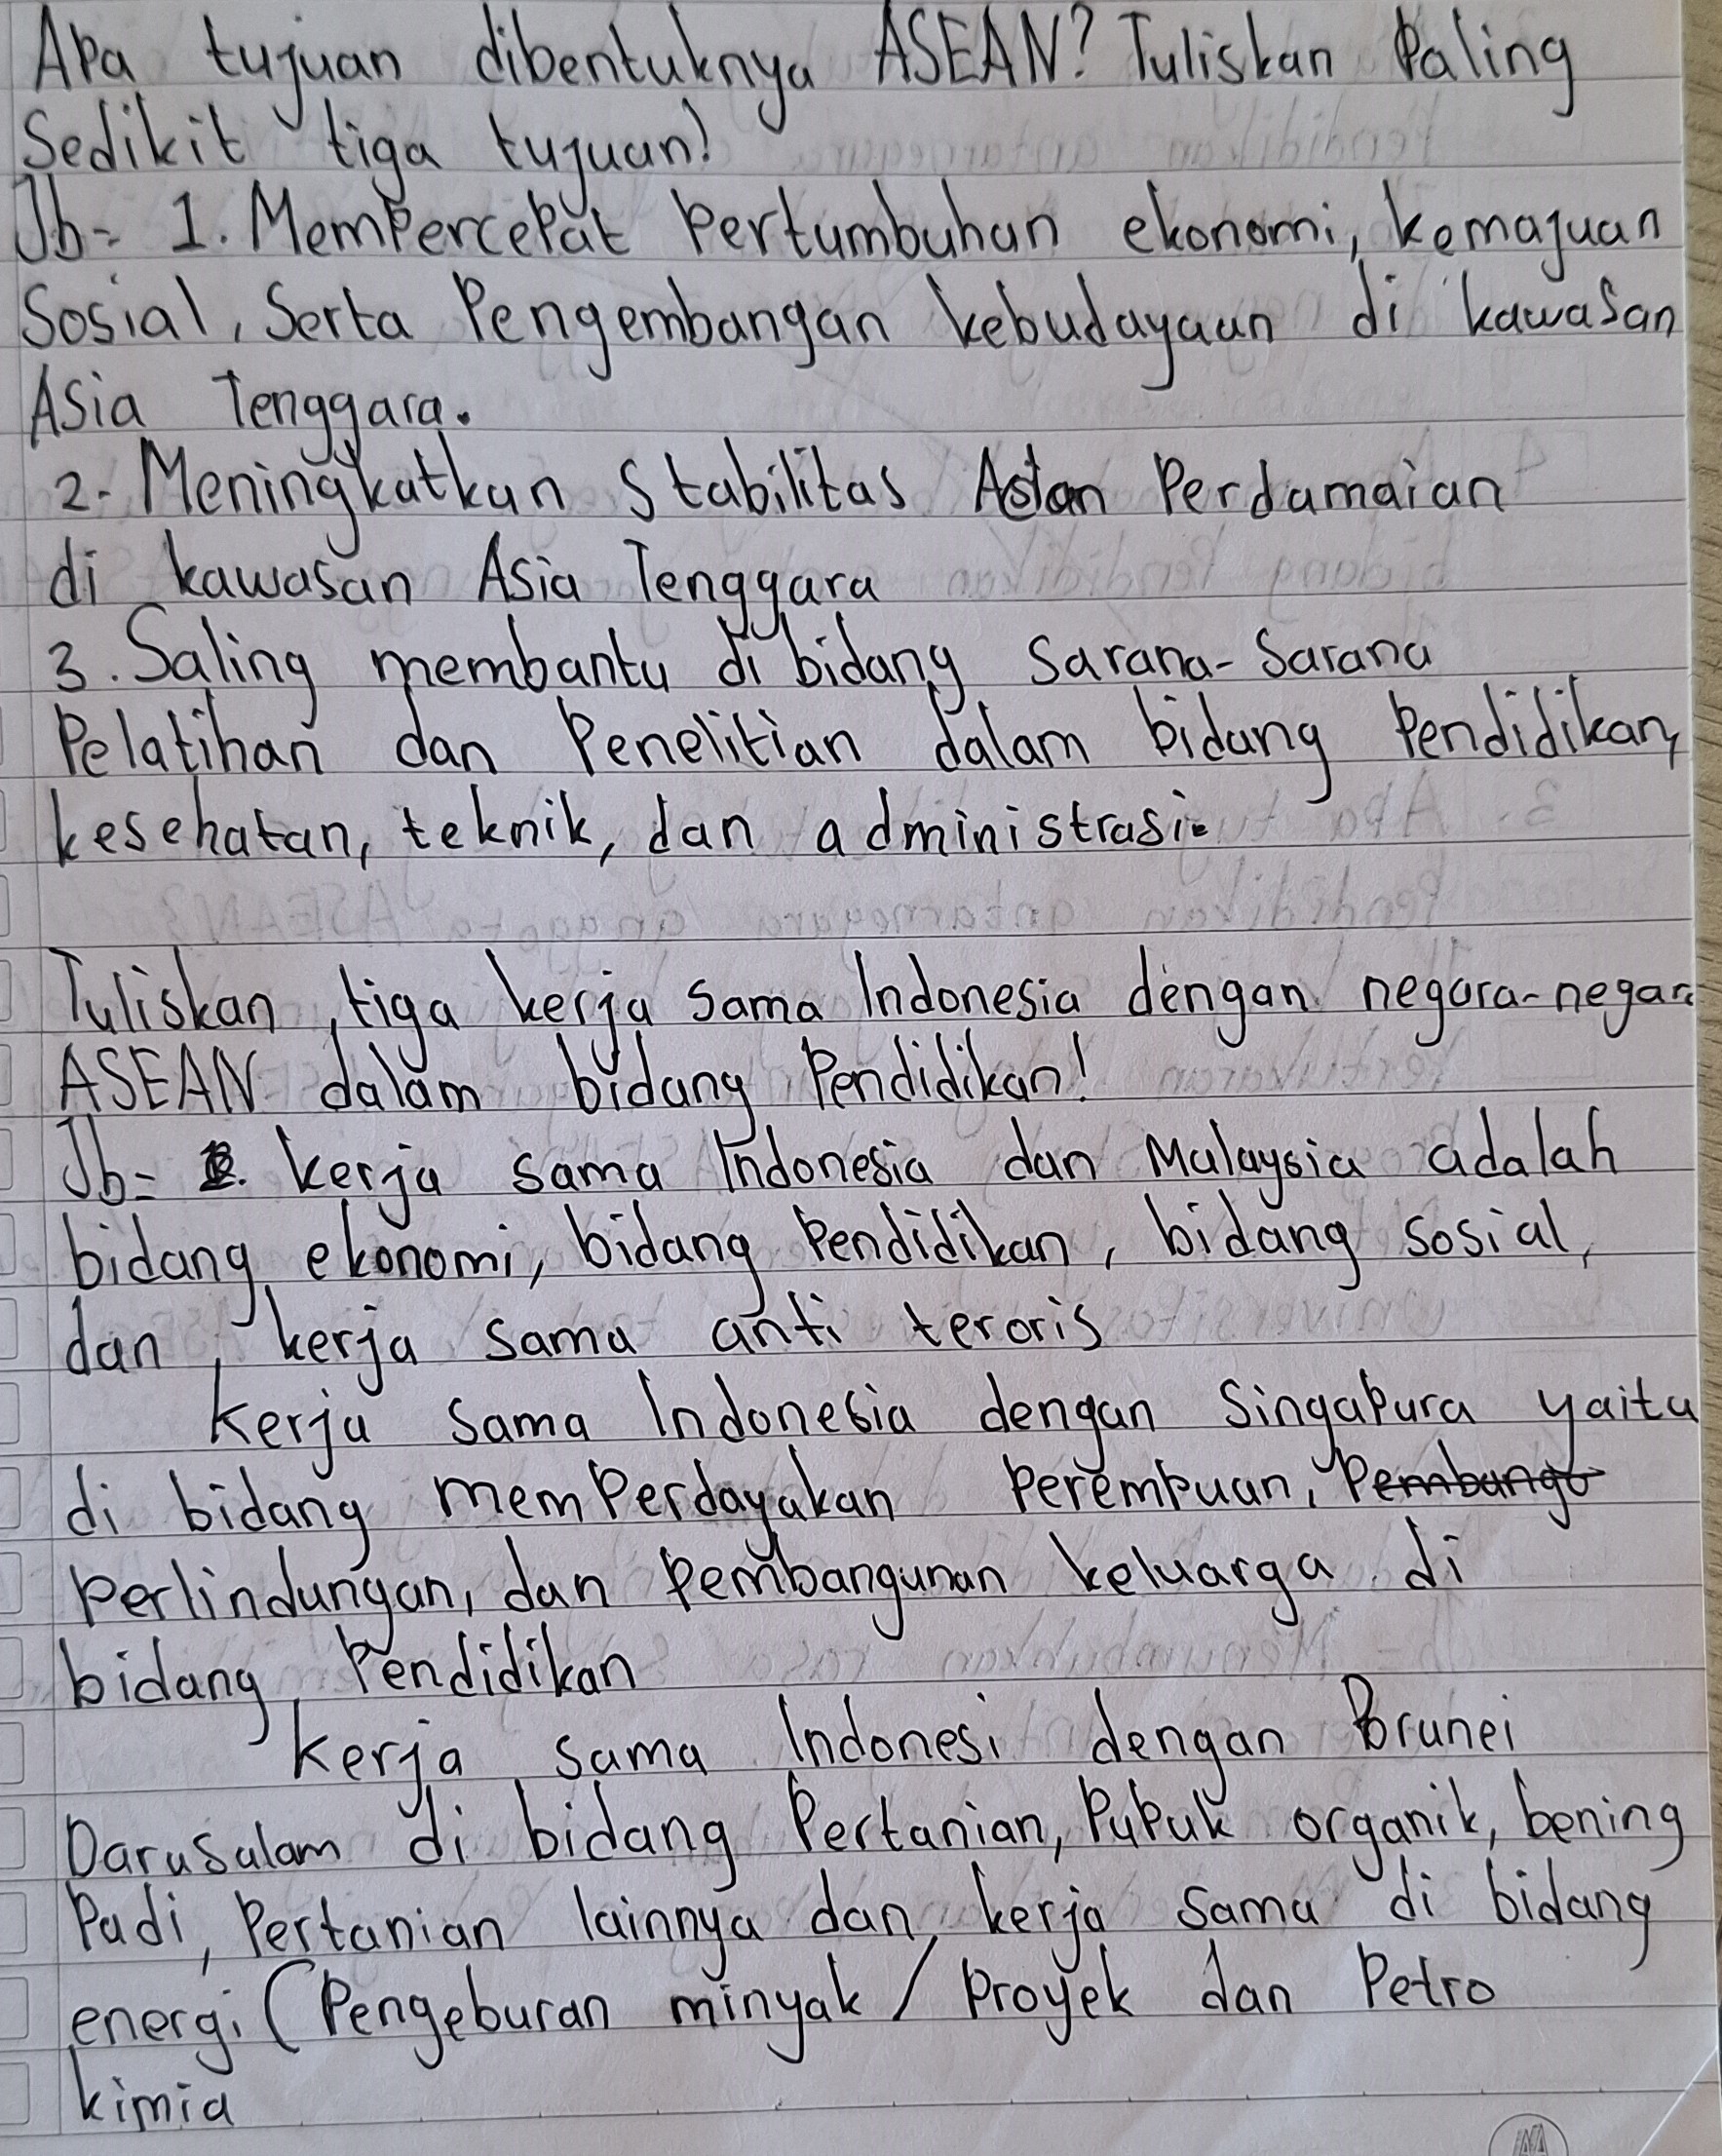 Apa tujuan dibentuknya ASEAN? Tuliskan Paling
Sedikit tiga tujuan!
Jb= 1. Mempercepat Pertumbuhan ekonomi, kemajuan
Sosial, Serta Pengembangan kebudayaan di kawasan
Asia Tenggara.
2. Meningkatkan Stabilitas dan Perdamaian
di kawasan Asia Tenggara
3. Saling membantu di bidang Sarana-Sarana
Pelatihan dan Penelitian dalam bidang Pendidikan,
kesehatan, teknik, dan administrasi.
Tuliskan tiga kerja sama Indonesia dengan negara-negara
ASEAN dalam bidang Pendidikan!
Jb= kerja sama Indonesia dan Malaysia adalah
bidang ekonomi, bidang Pendidikan, bidang sosial,
dan, kerja sama anti teroris
kerja sama Indonesia dengan Singapura yaitu
di bidang memperdayakan Perempuan, Pembango
Perlindungan, dan Pembangunan keluarga di
bidang Pendidikan
kerja sama Indonesi dengan Brunei
Darusalam di bidang Pertanian, Pupuk organik, bening
Padi, Pertanian lainnya dan kerja sama di bidang
energi (Pengeburan minyak / Proyek dan Petro
kimia